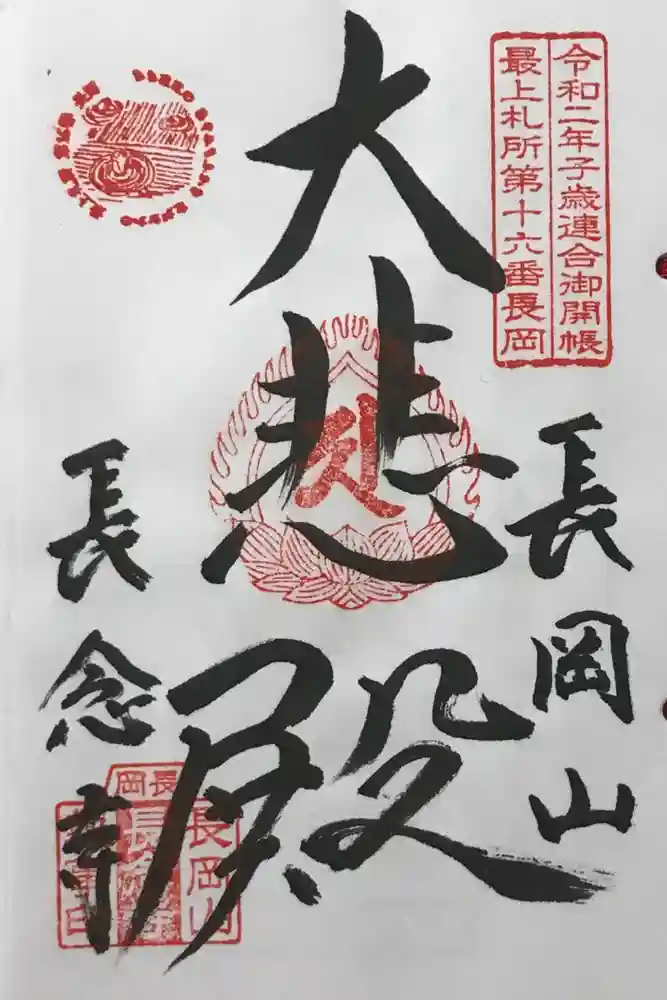 令和二年子歳連合御開帳
最上札所第十六番長岡
長岡山
大悲殿
長念寺
長岡
長岡山